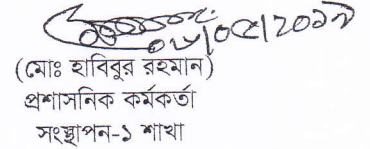 ০৮/০৫/২০১৯
(মোঃ হাবিবুর রহমান)
প্রশাসনিক কর্মকর্তা
সংস্থাপন-১ শাখা